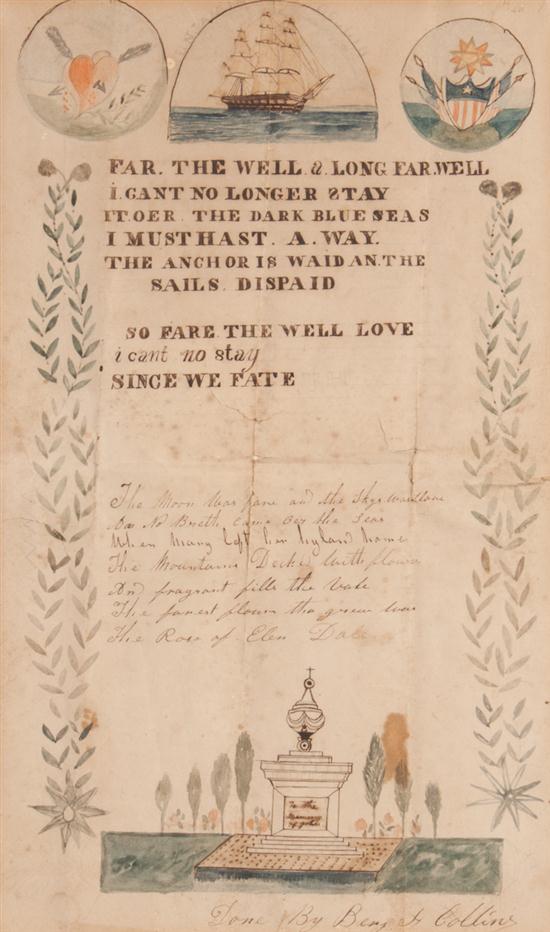 FAR. THE WELL. & LONG FAR.WELL
i.CANT NO LONGER STAY
IT.OER. THE DARK BLUE SEAS
I MUST HAST. A. WAY.
THE ANCHOR IS WAID AN.THE
SAILS. DISPAID
SO FARE THE WELL LOVE
i cant no stay
SINCE WE FATE
The Moon Was fane and the Skys was
No Breth Came Oer the Seas
When Mary left her hyland home
The Mountains Deckd With flower
And fragrant fills the Vale
The farest flower the grew was
The Rose of Elen Dale
To the
Memory
of
Done By Benj F Collins